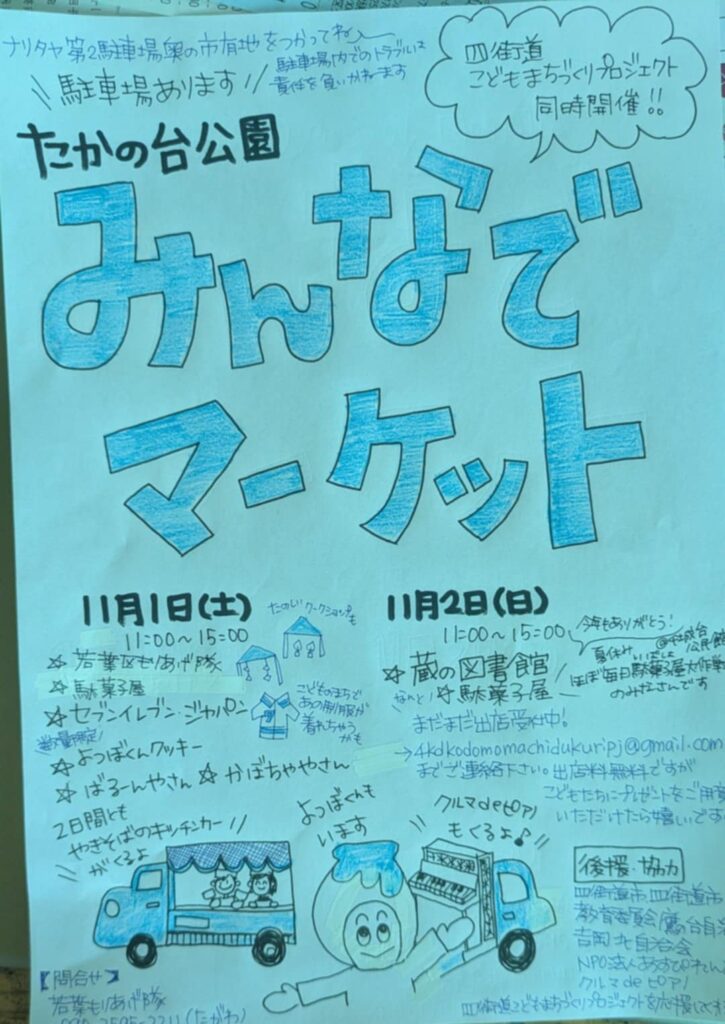 ナリタヤ第2駐車場奥の市有地をつかってね
駐車場あります
駐車場内でのトラブルは
責任を負いかねます
四街道
こどもまちづくりプロジェクト
同時開催!!
たかの台公園
みんなで
マーケット
11月1日(土)
11:00〜15:00
☆若葉区もりあげ隊
☆駄菓子屋
☆セブンイレブン・ジャパン
数量限定!
☆よつぼくんクッキー
☆ばるーんやさん ☆かぼちゃやさん
たのしいワークショップも
こどものまちで
あの制服が
着れちゃう
かも
11月2日(日)
11:00〜15:00
今年もありがとう!
☆蔵の図書館
なんと!
☆駄菓子屋
夏休み
公民館
ほぼ毎日駄菓子屋大作戦
のみなさんです
まだまだ出店受付中!
→4kdkodomomachidukuripj@gmail.com
までご連絡下さい。出店料無料ですが
こどもたちにプレゼントをご用意
いただけたら嬉しいです
2日間とも
やきそばのキッチンカー
がくるよ
よつぼくんも
います
クルマdeピアノ
もくるよ♪
後援・協力
四街道市 四街道市
教育委員会/鷹の台自治
吉岡北自治会
NPO法人
クルマdeピアノ
四街道こどもまちづくりプロジェクトを応援して
【問合せ】
若葉もりあげ隊
(たがわ)